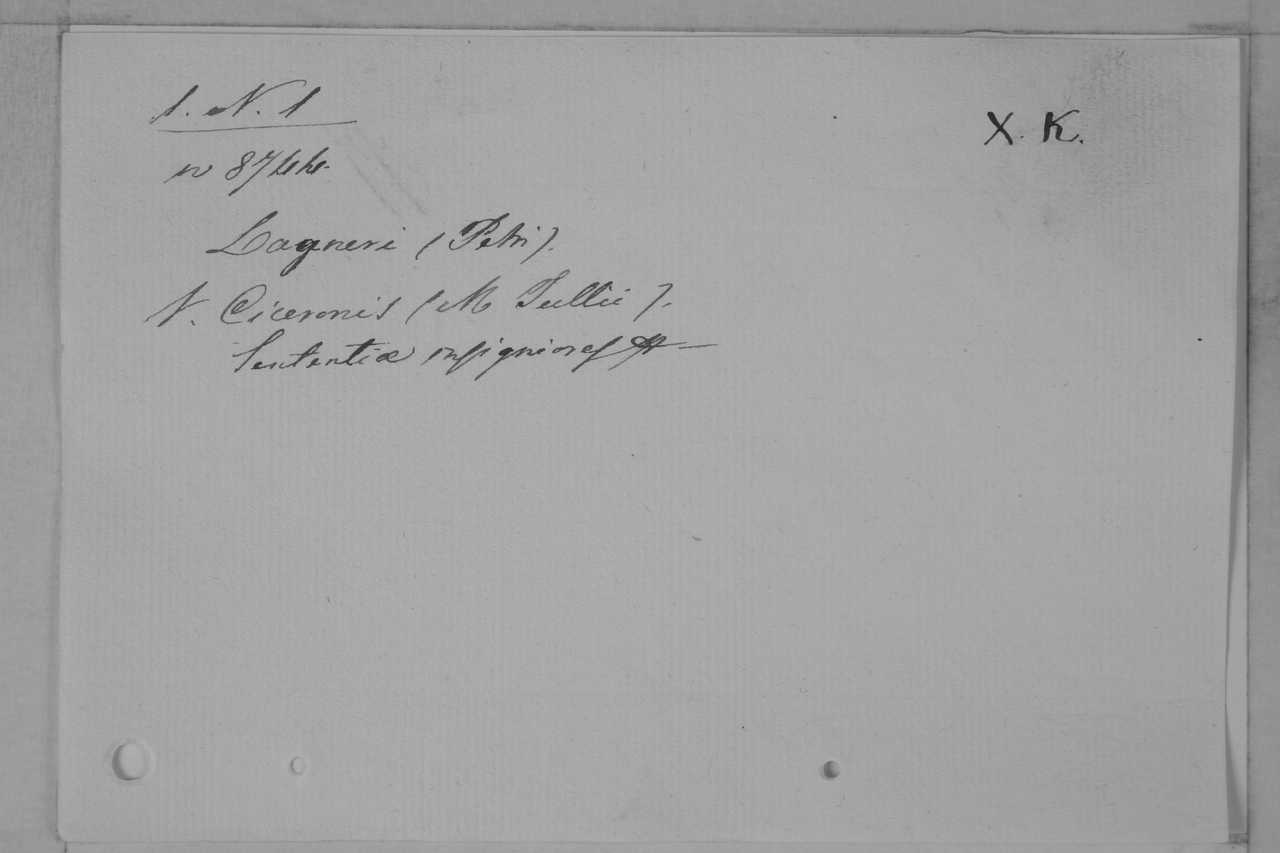 1. N. 1
X. K.
n 8744.
Lagneri (Petri).
V. Ciceronis (M Tullii).
Sententiæ insigniores